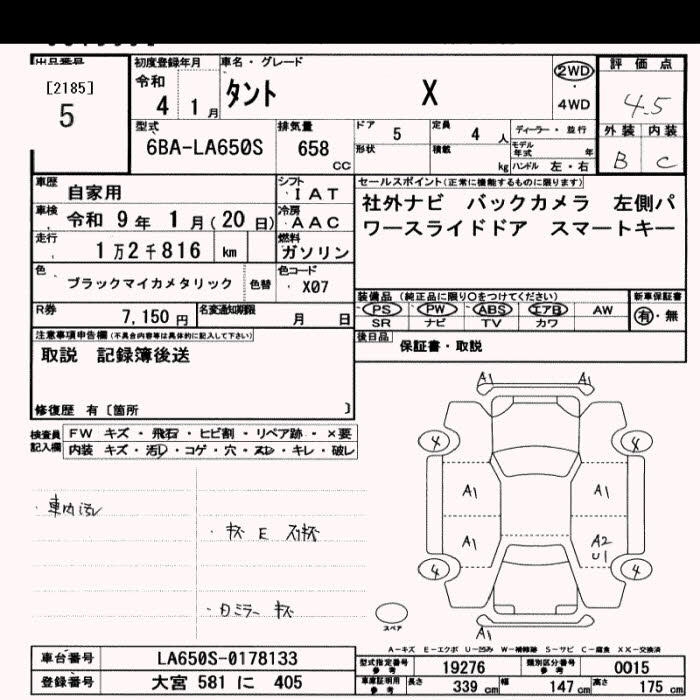 出品番号
[2185]
5
初度登録年月
令和
4 1 月
車名・グレード
タント X
2WD
・
4WD
評価点
4.5
外装 内装
B C
型式
6BA-LA650S
排気量
658
CC
ドア 5
定員 4 人
ディーラー・並行
形状
積載 kg
モデル年式 年
ハンドル 左・右
車歴 自家用
シフト I A T
車検 令和 9 年 1 月 (20 日)
冷房 A A C
走行 1 万 2 千 816 km
燃料 ガソリン
色 ブラックマイカメタリック 色替
色コード X07
R券 7,150 円
名変通知期限 月 日
セールスポイント(正常に機能するものに限ります)
社外ナビ バックカメラ 左側パ
ワースライドドア スマートキー
装備品 (純正品に限り○をつけてください)
PS PW ABS エアB AW
SR ナビ TV カワ
新車保証書
有・無
後日品 保証書・取説
注意事項申告欄(不具合内容等は具体的に記入して下さい)
取説 記録簿後送
修復歴 有〔箇所 〕
検査員記入欄
FW キズ・飛石・ヒビ割・リペア跡・×要
内装 キズ・汚レ・コゲ・穴・スレ・キレ・破レ
・車内汚レ
・キズ E
・ミラー キズ
A1 A1
4 4
A1 A1
A1 A2
U1
4 4
A1
スペア
A－キズ E－エクボ U－凹み W－補修跡 S－サビ C－腐食 XX－交換済
車台番号 LA650S-0178133
登録番号 大宮 581 に 405
型式指定番号 参考 19276
類別区分番号 参考 0015
車庫証明用 参考 長さ 339 cm 幅 147 cm 高さ 175 cm